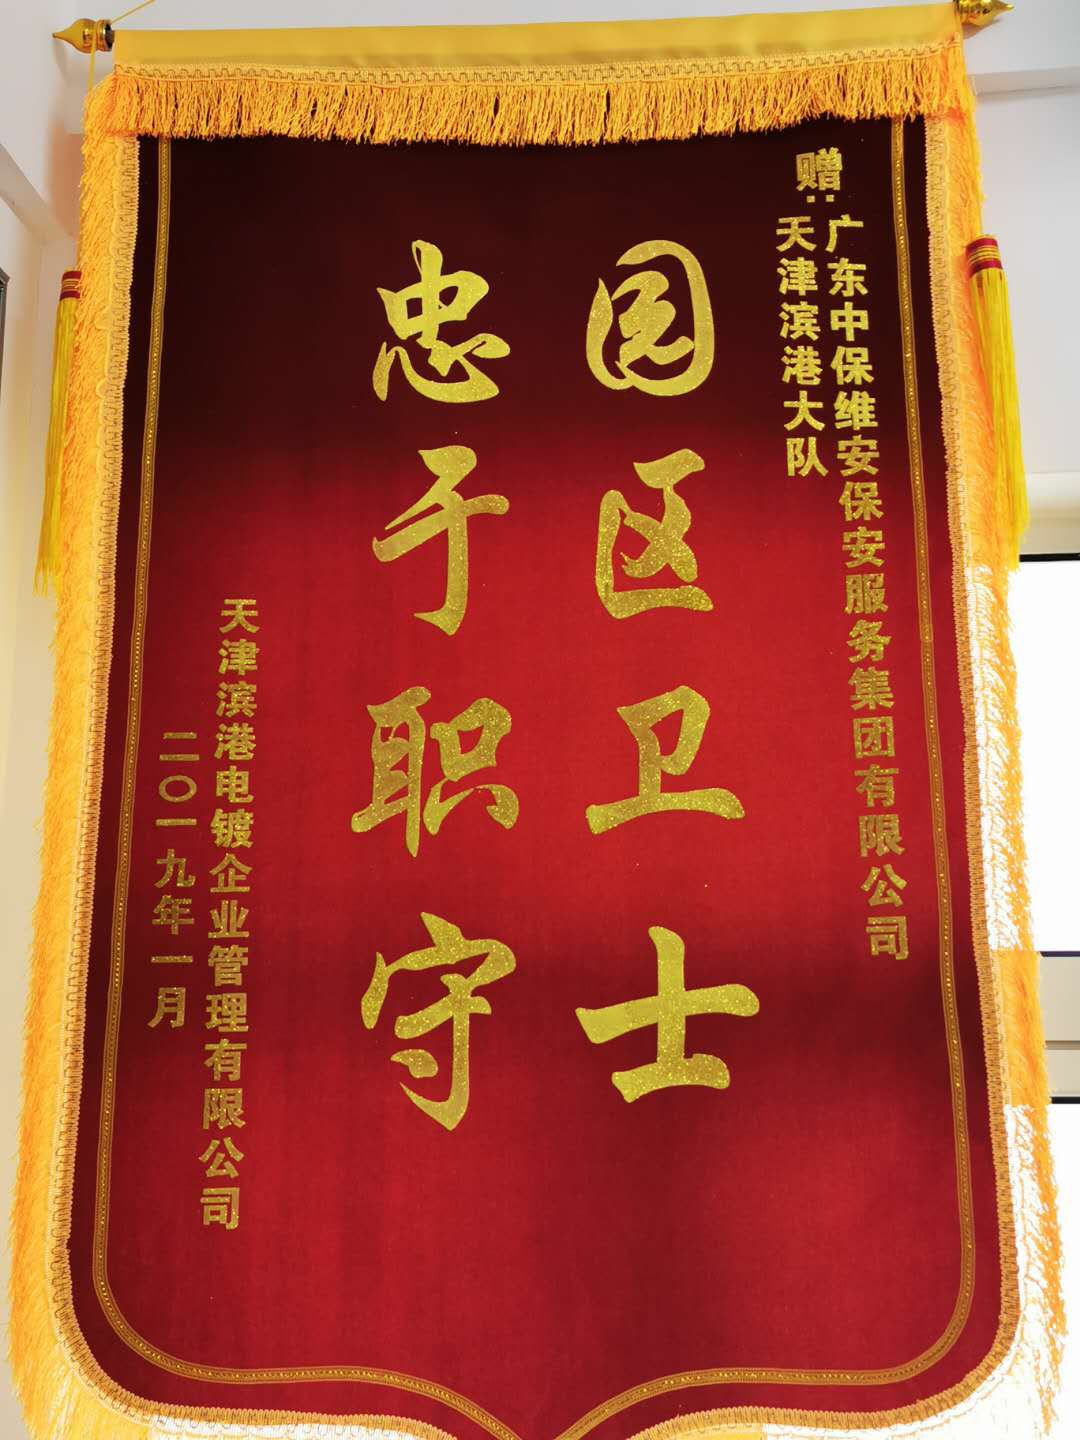 赠：
广东中保维安保安服务集团有限公司
天津滨港大队
园区卫士
忠于职守
天津滨港电镀企业管理有限公司
二〇一九年一月